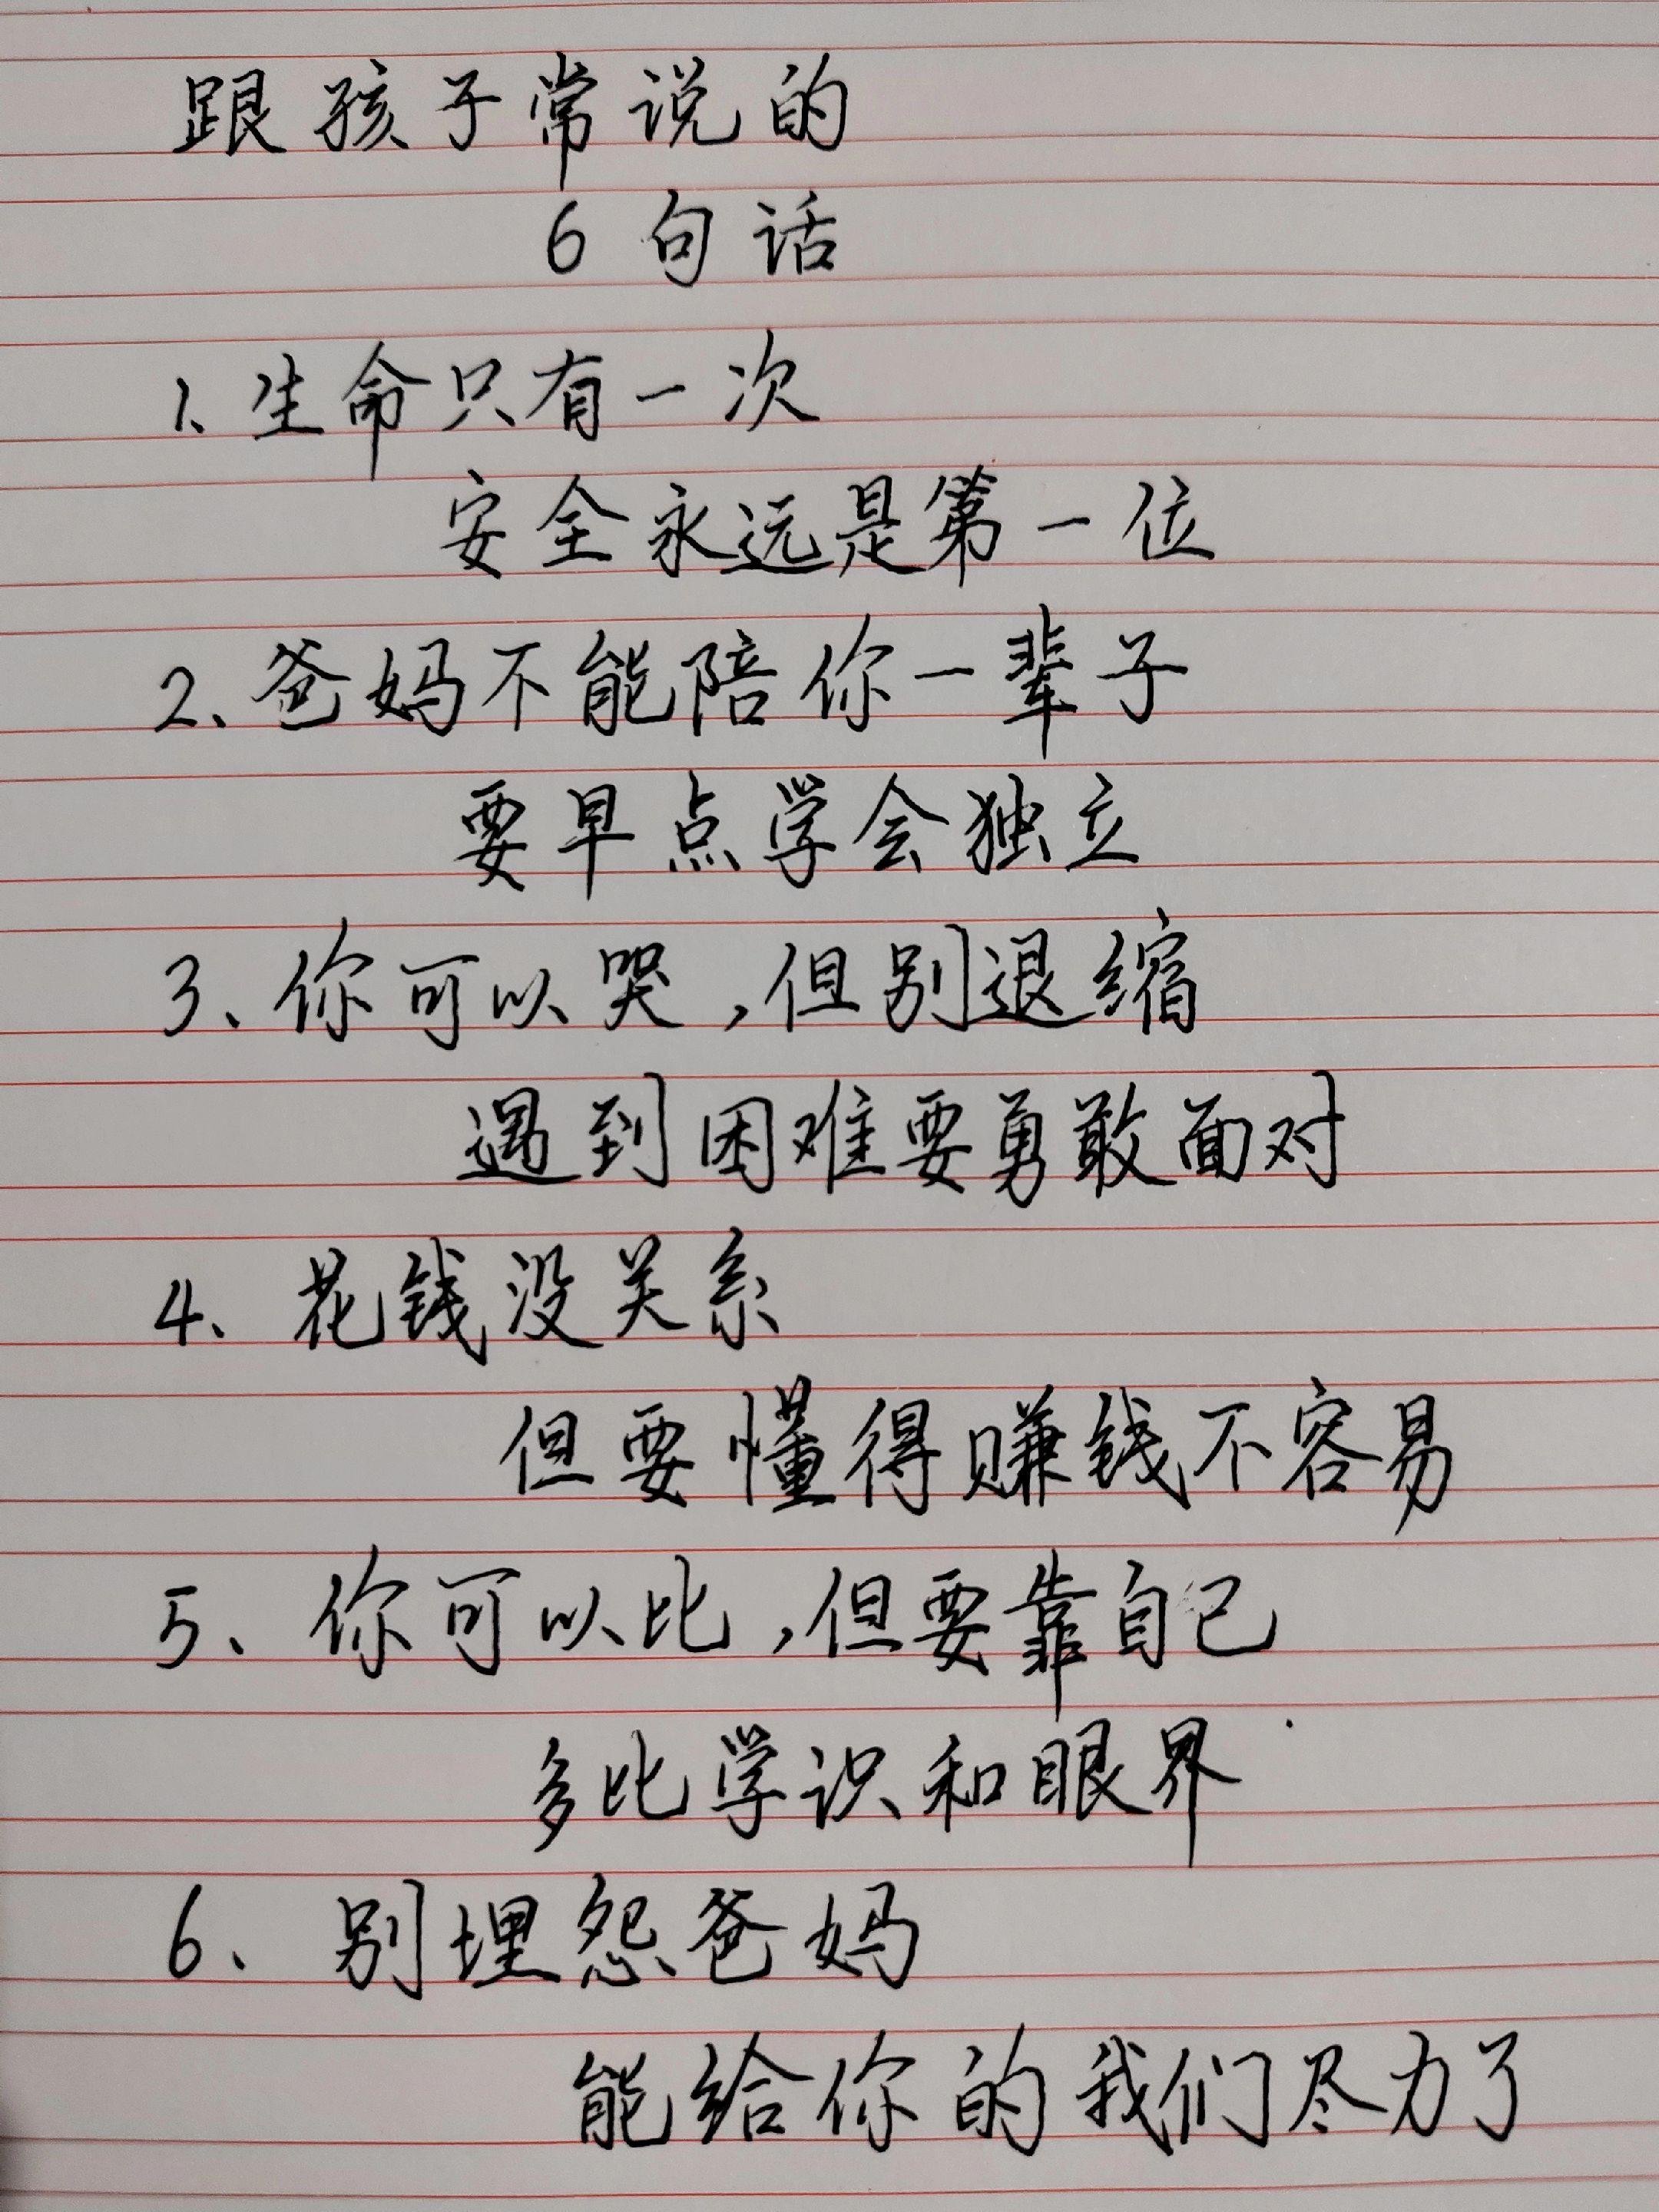 跟孩子常说的
6句话
1、生命只有一次
安全永远是第一位
2、爸妈不能陪你一辈子
要早点学会独立
3、你可以哭,但别退缩
遇到困难要勇敢面对
4、花钱没关系
但要懂得赚钱不容易
5、你可以比,但要靠自己
多比学识和眼界
6、别埋怨爸妈
能给你的我们尽力了